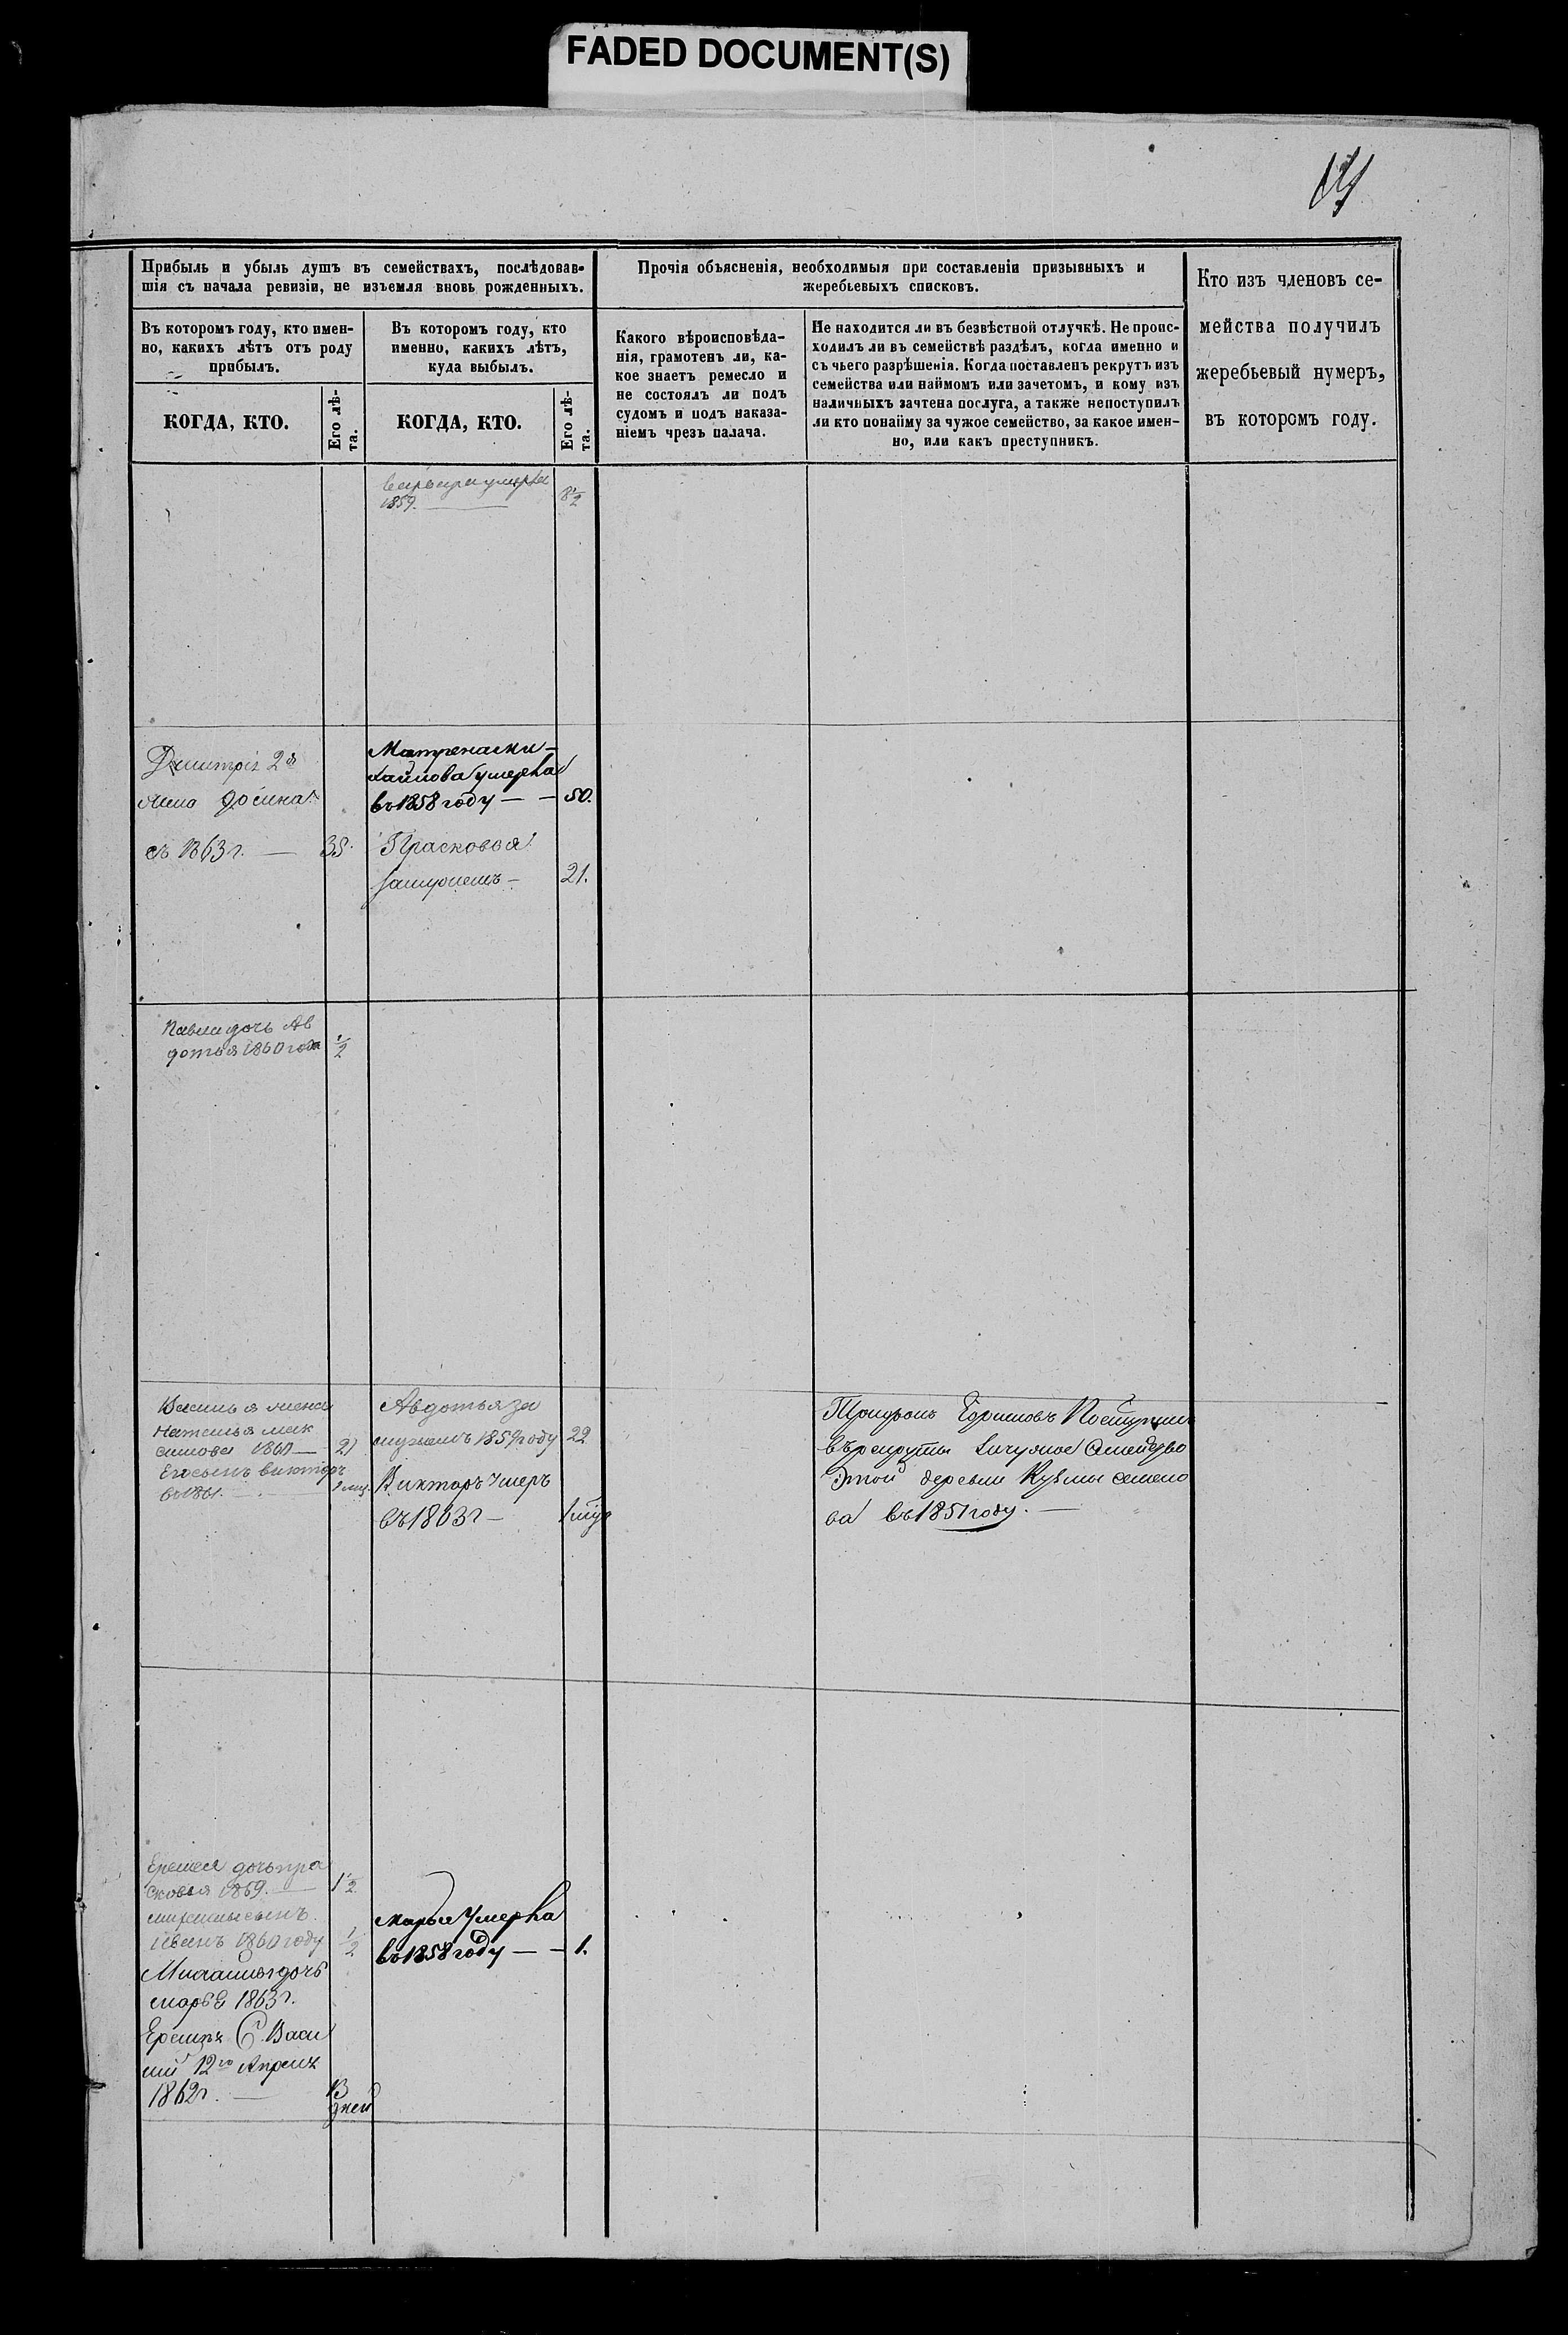 FADED DOCUMENT(S)
Прибыль и убыль душъ въ семействахъ, послѣдовав-
шія съ начала ревизіи, не изъемля вновь рожденныхъ.
Прочія объясненія, необходимыя при составленіи призывныхъ и
жеребьевыхъ списковъ.
Кто изъ членовъ се-
мейства получилъ
жеребьевый нумеръ,
въ которомъ году.
Въ которомъ году, кто имен-
но, какихъ лѣтъ отъ роду
прибылъ.
Въ которомъ году, кто
именно, какихъ лѣтъ,
куда выбылъ.
Какого вѣроисповѣда-
нія, грамотенъ ли, ка-
кое знаетъ ремесло и
не состоялъ ли подъ
судомъ и подъ наказа-
ніемъ чрезъ палача.
Не находится ли въ безвѣстной отлучкѣ. Не проис-
ходилъ ли въ семействѣ раздѣлъ, когда именно и
съ чьего разрѣшенія. Когда поставленъ рекрутъ изъ
семейства или наймомъ или зачетомъ, и кому изъ
наличныхъ зачтена послуга, а также непоступилъ
ли кто понайму за чужое семейство, за какое имен-
но, или какъ преступникъ.
КОГДА, КТО.
Его лѣ-
та.
КОГДА, КТО.
Его лѣ-
та.
варвара умерла
1859. 8½
Дмитрія 2я
съ 1863 г. — 35.
Матрена Ми-
хайлова умерла
въ 1858 году — — 50.
Прасковья
замужемъ — 21.
Павла дочь Ав
дотья 1860 года ½
Василья жена
Наталья мак
симова 1860 — 21
Его сынъ викторъ
въ 1861.
Авдотья за
мужемъ 1859 году 22
Викторъ умеръ
въ 1863 г —
Трифонъ Ефимовъ Поступилъ
въ рекруты за чужое Семейство
Этой деревни Кузмы семено
ва въ 1851 году. —
Еремея дочь пра
сковья 1859. — 1½
сынъ
иванъ 1860 году ½
Михайлы дочь
марья 1863 г.
С. Васи
лій 12го Апреля
1862 г. — 13
дней
марья умерла
въ 1858 году — — 1.